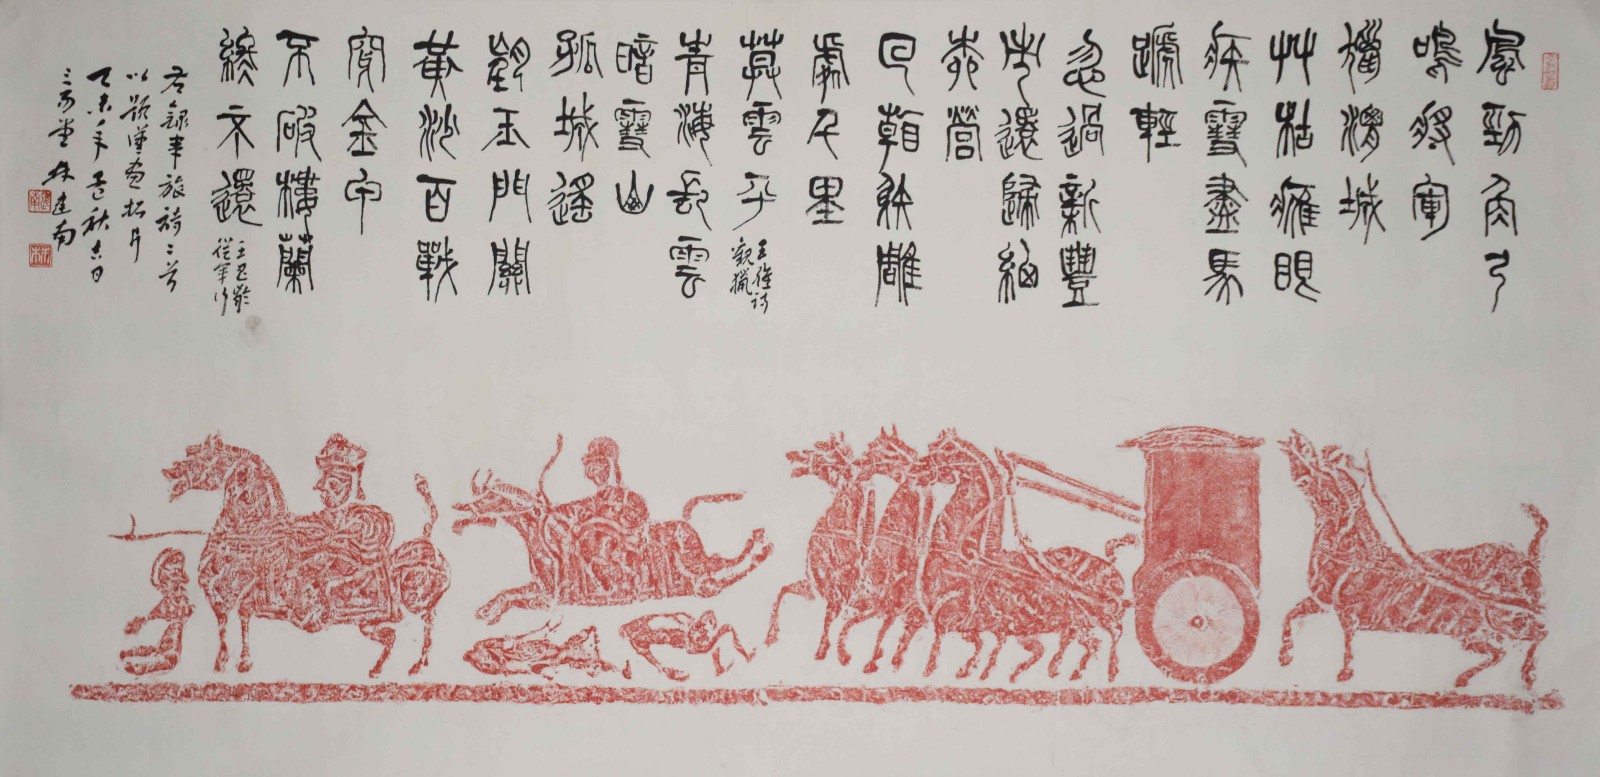 風勁角弓
鳴將軍
獵渭城
艸枯鷹眼
疾雪盡馬
蹏輕
忽過新豐
市還歸細
柳營
回看射雕
處千里
莫雲平
王維詩
觀獵
青海長雲
暗雪山
孤城遙
望玉門關
黃沙百戰
穿金甲
不破樓蘭
終不還
王昌齡
從軍行
右錄軍旅詩二首
以題漢畫拓片
乙未年孟秋吉日
林建南